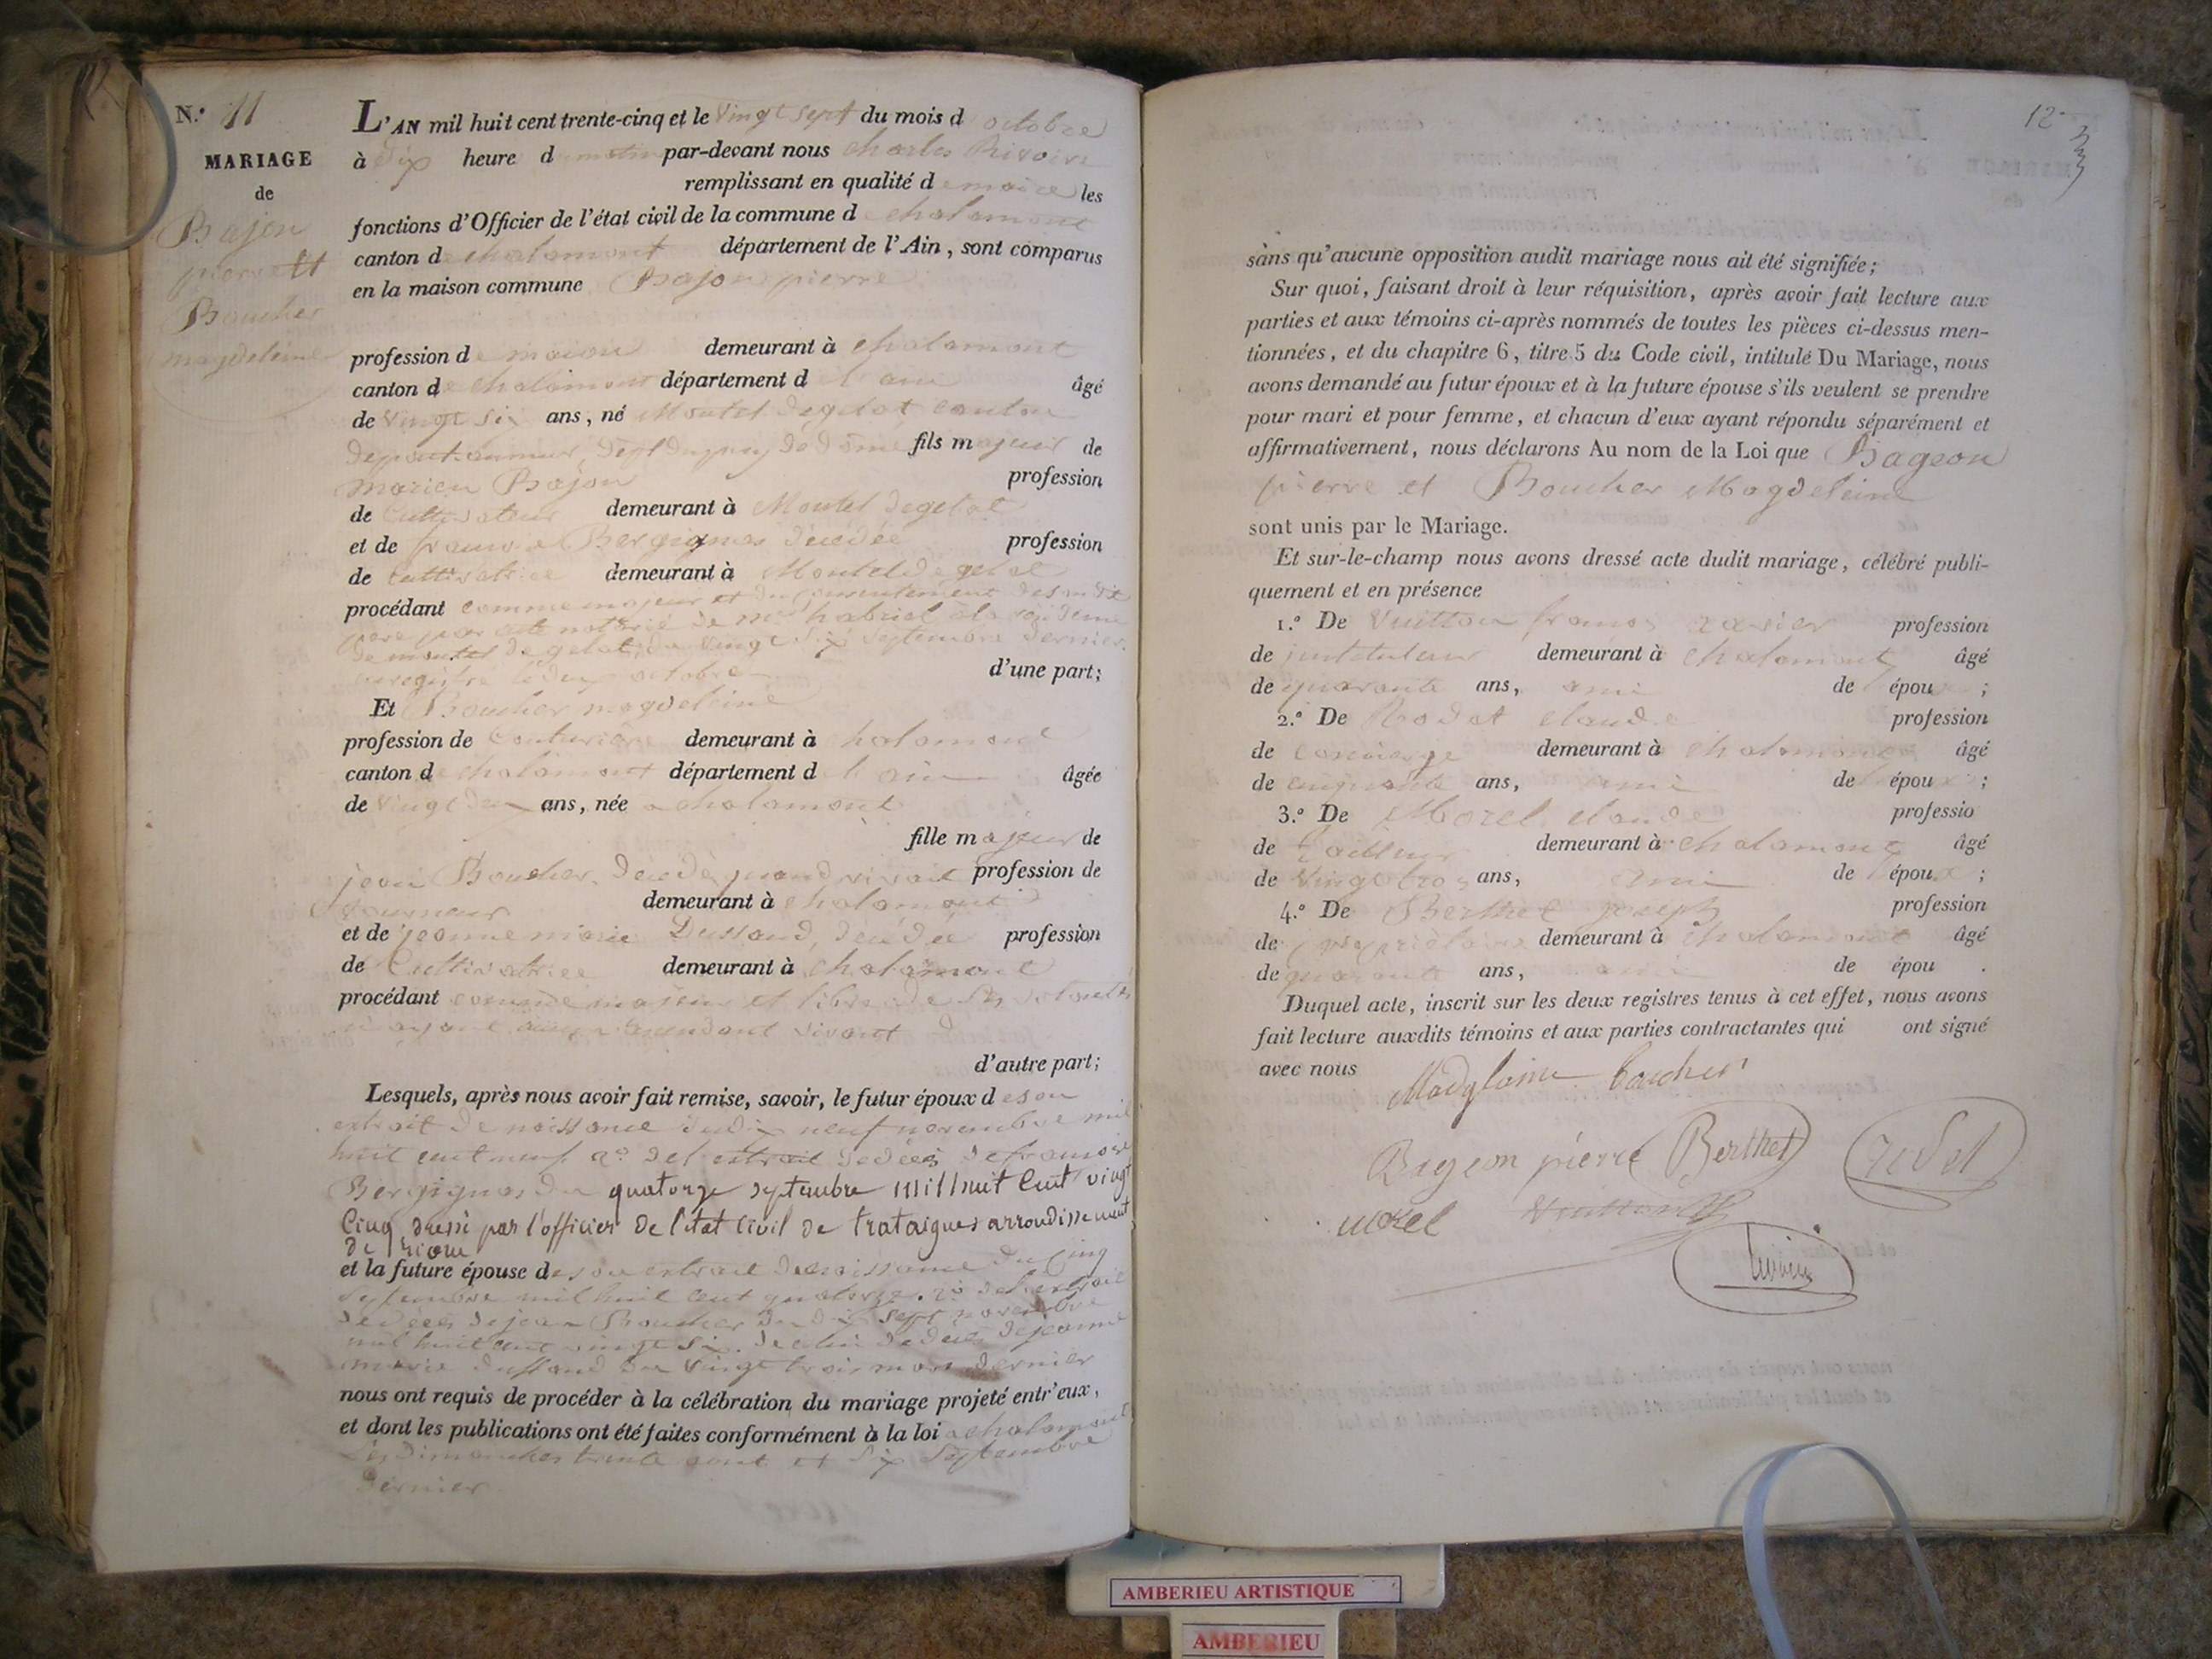 N.º 11
MARIAGE
de
Bajon
pierre et
Boucher
magdeleine
L'AN mil huit cent trente-cinq et le vingt sept du mois d octobre
à dix heure d matin par-devant nous charles Rivoire
remplissant en qualité de maire les
fonctions d'Officier de l'état civil de la commune de chalamont
canton de chalamont département de l'Ain, sont comparus
en la maison commune Bajon pierre
profession de maçon demeurant à chalamont
canton de chalamont département de l'ain âgé
de vingt six ans, né Montel degelat canton
de pontaumur, dept du puy de dome fils majeur de
marien Bajon profession
de Cultivateur demeurant à Montel degelat
et de françoise Bergignas décédée profession
de cultivatrice demeurant à Montel de gelat
procédant comme majeur et du consentement de sondit
père par acte notarié de me chabriol à la résidence
de montel de gelat, du vingt six septembre dernier,
enregistré le dix octobre d'une part;
Et Boucher magdeleine
profession de Couturière demeurant à chalamont
canton de chalamont département de l'ain âgée
de vingt deux ans, née a chalamont
fille majeur de
jean Boucher, décédé, quand vivait profession de
tourneur demeurant à chalamont
et de jeanne marie Dussaud, décédée profession
de Cultivatrice demeurant à chalamont
procédant comme majeure et libre de ses volontés
n'ayant aucun ascendant vivant
d'autre part;
Lesquels, après nous avoir fait remise, savoir, le futur époux de son
extrait de naissance du dix neuf novembre mil
huit cent neuf. 2º de l'extrait de décès de françoise
Bergignas du quatorze septembre mil huit Cent vingt
Cinq dressé par l'officier de l'état Civil de trataigues arrondissement
de riom
et la future épouse de son extrait de naissance du cinq
septembre mil huit cent quatorze. 2º de l'extrait
de décès de jean Boucher du dix sept novembre
mil huit cent vingt six. de celui de décès de jeanne
marie dussaud du vingt trois mars dernier
nous ont requis de procéder à la célébration du mariage projeté entr'eux,
et dont les publications ont été faites conformément à la loi a chalamont
les dimanches trente aout et six septembre
dernier
12
sàns qu'aucune opposition audit mariage nous ait été signifiée;
Sur quoi, faisant droit à leur réquisition, après avoir fait lecture aux
parties et aux témoins ci-après nommés de toutes les pièces ci-dessus men-
tionnées, et du chapitre 6, titre 5 du Code civil, intitulé Du Mariage, nous
avons demandé au futur époux et à la future épouse s'ils veulent se prendre
pour mari et pour femme, et chacun d'eux ayant répondu séparément et
affirmativement, nous déclarons Au nom de la Loi que Bageon
pierre et Boucher Magdeleine
sont unis par le Mariage.
Et sur-le-champ nous avons dressé acte dudit mariage, célébré publi-
quement et en présence
1.º De Vuitton françois xavier profession
de instituteur demeurant à chalamont âgé
de quarante ans, ami de épou ;
2.º De Rodet claude profession
de concierge demeurant à chalamont âgé
de cinquante ans, ami de époux ;
3.º De Morel claude professio
de tailleur demeurant à chalamont âgé
de vingt trois ans, ami de époux ;
4.º De Berthet joseph profession
de propriétaire demeurant à chalamont âgé
de quarante ans, ami de épou .
Duquel acte, inscrit sur les deux registres tenus à cet effet, nous avons
fait lecture auxdits témoins et aux parties contractantes qui ont signé
avec nous
Madglaine Boucher
Bageon pierre Berthet rodet
morel Vuitton
Rivoire
AMBERIEU ARTISTIQUE
AMBERIEU